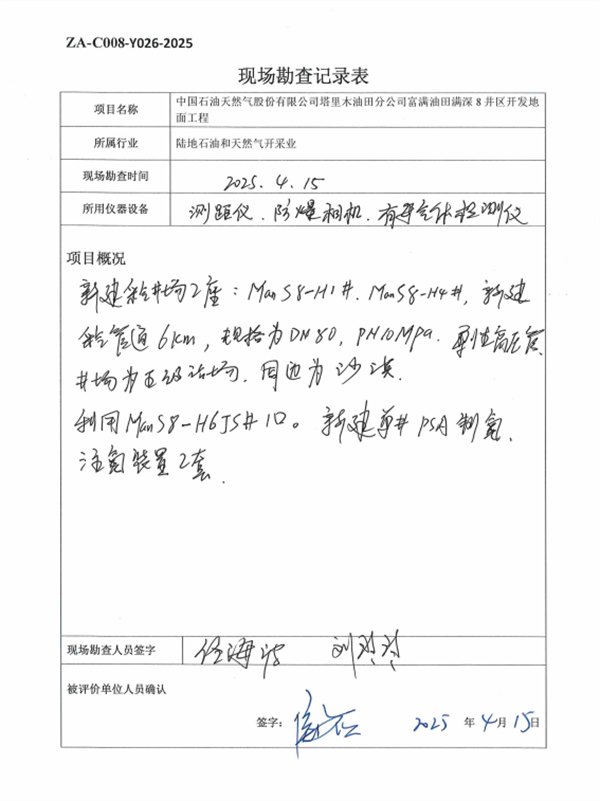 ZA-C008-Y026-2025
现场勘查记录表
项目名称
中国石油天然气股份有限公司塔里木油田分公司富满油田满深 8 井区开发地
面工程
所属行业
陆地石油和天然气开采业
现场勘查时间
2025.4.15
所用仪器设备
测距仪、防爆相机、有毒气体检测仪
项目概况
新建采油井场2座：ManS8-H1井、ManS8-H4井，新建
管道6km，规格为DN80，PN10MPa.
井场为五级站场，周边为沙漠.
利用ManS8-H6JS井1口。新建单井PSA制氮、
注氮装置2套.
现场勘查人员签字
任海 刘
被评价单位人员确认
签字：
2025 年 4 月 15 日